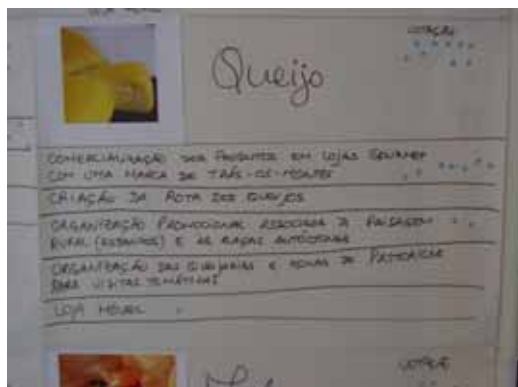 VOTAÇÃO
Queijo
COMERCIALIZAÇÃO DOS PRODUTOS EM LOJAS GOURMET
COM UMA MARCA DE TRÁS-OS-MONTES
CRIAÇÃO DA ROTA DOS QUEIJOS
ORGANIZAÇÃO PROMOCIONAL ASSOCIADA À PAISAGEM
RURAL (REBANHOS) E AS RAÇAS AUTÓCTONAS
ORGANIZAÇÃO DAS QUEIJARIAS E ZONAS DE PASTORICIA
PARA VISITAS TEMÁTICAS
LOJA MÓVEL
VOTAÇÃO